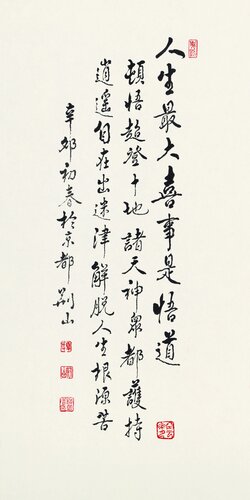 人生最大喜事是悟道
頓悟超登十地諸天神眾都護持
逍遥自在出迷津解脱人生根源苦
辛卯初春於京都荆山